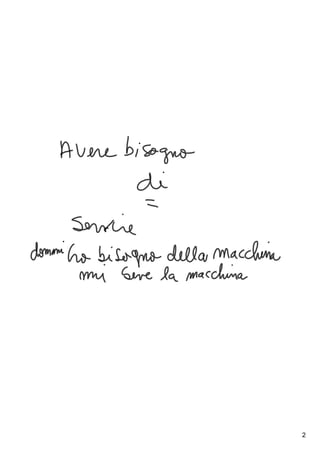 Avere bisogno
di
=
Servire
domani ho bisogno della macchina
mi serve la macchina
2